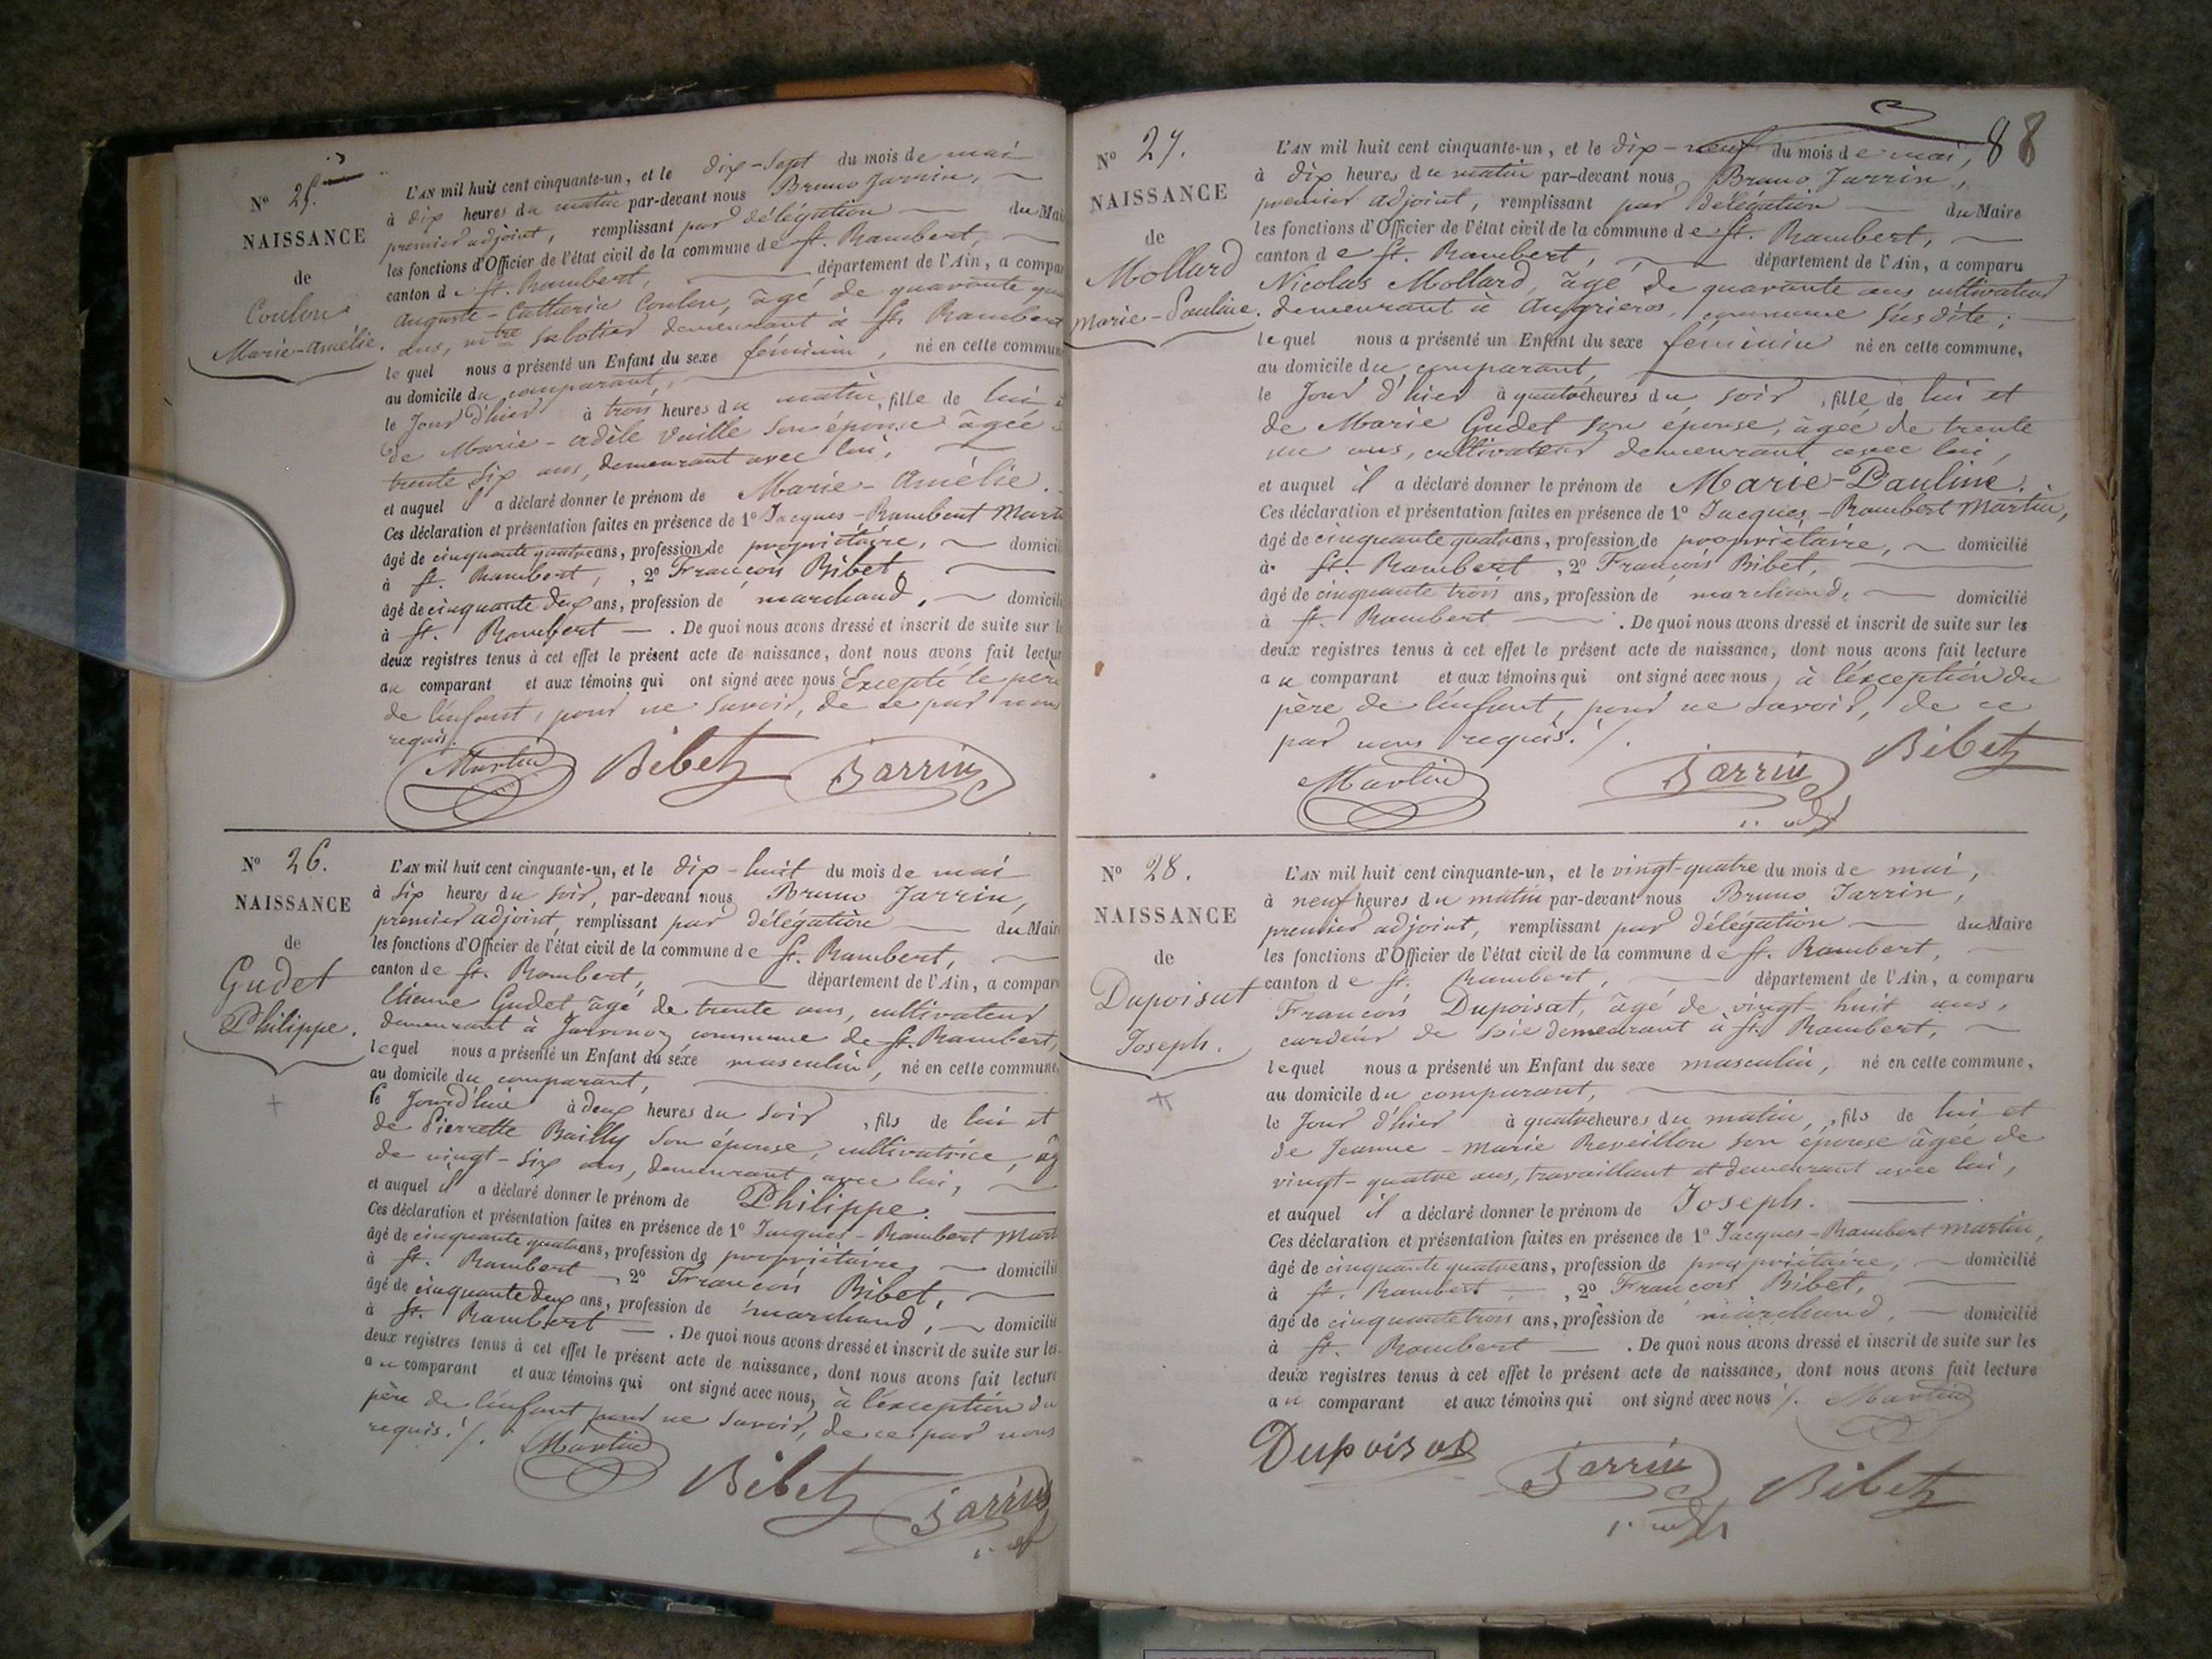 Nº 25.
NAISSANCE
de
Coulon
Marie-Amélie.
L'AN mil huit cent cinquante-un, et le dix-sept du mois de mai
à dix heures du matin par-devant nous Bruno Jarrin,
premier adjoint, remplissant par délégation du Mai
les fonctions d'Officier de l'état civil de la commune de St. Rambert,
canton de St. Rambert, département de l'Ain, a compar
Auguste-Cattherin Coulon, âgé de quarante
ans, sabotier demeurant à St. Rambert
lequel nous a présenté un Enfant du sexe féminin, né en cette commun
au domicile du comparant,
le Jour d'hier à trois heures du matin, fille de lui
de Marie-Adèle Vuille son épouse âgée
trente six ans, demeurant avec lui,
et auquel il a déclaré donner le prénom de Marie-Amélie.
Ces déclaration et présentation faites en présence de 1º Jacques-Rambert Marti
âgé de cinquante quatre ans, profession de propriétaire, domicili
à St. Rambert, 2º François Bibet,
âgé de cinquante deux ans, profession de marchand, domicili
à St. Rambert. De quoi nous avons dressé et inscrit de suite sur l
deux registres tenus à cet effet le présent acte de naissance, dont nous avons fait lectur
au comparant et aux témoins qui ont signé avec nous Excepté le père
de l'enfant, pour ne savoir, de ce par nous
requis.
Martin Bibet Jarrin
Nº 26.
NAISSANCE
de
Gudet
Philippe.
L'AN mil huit cent cinquante-un, et le dix-huit du mois de mai
à six heures du soir, par-devant nous Bruno Jarrin,
premier adjoint, remplissant par délégation du Mair
les fonctions d'Officier de l'état civil de la commune de St. Rambert,
canton de St. Rambert, département de l'Ain, a compar
Etienne Gudet âgé de trente ans, cultivateur
demeurant à Javornoz commune de St. Rambert,
lequel nous a présenté un Enfant du sexe masculin, né en cette commune,
au domicile du comparant,
le Jourd'hui à deux heures du soir, fils de lui et
de Pierrette Bailly son épouse, cultivatrice, âg
de vingt-six ans, demeurant avec lui,
et auquel il a déclaré donner le prénom de Philippe.
Ces déclaration et présentation faites en présence de 1º Jacques-Rambert Mart
âgé de cinquante quatre ans, profession de propriétaire, domicilié
à St. Rambert, 2º François Bibet,
âgé de cinquante deux ans, profession de marchand, domicilié
à St. Rambert. De quoi nous avons dressé et inscrit de suite sur les
deux registres tenus à cet effet le présent acte de naissance, dont nous avons fait lecture
au comparant et aux témoins qui ont signé avec nous, à l'exception du
père de l'enfant pour ne savoir, de ce par nous
requis./.
Martin Bibet Jarrin
88
Nº 27.
NAISSANCE
de
Mollard
Marie-Pauline.
L'AN mil huit cent cinquante-un, et le dix-neuf du mois de mai,
à dix heures du matin par-devant nous Bruno Jarrin,
premier adjoint, remplissant par délégation du Maire
les fonctions d'Officier de l'état civil de la commune de St. Rambert,
canton de St. Rambert, département de l'Ain, a comparu
Nicolas Mollard, âgé de quarante ans cultivateur
demeurant à Angrieros, commune susdite;
lequel nous a présenté un Enfant du sexe féminin né en cette commune,
au domicile du comparant,
le Jour d'hier à quatre heures du soir, fille de lui et
de Marie Gudet son épouse, âgée de trente
un ans, cultivateur demeurant avec lui,
et auquel il a déclaré donner le prénom de Marie-Pauline.
Ces déclaration et présentation faites en présence de 1º Jacques-Rambert Martin,
âgé de cinquante quatre ans, profession de propriétaire, domicilié
à St. Rambert, 2º François Bibet,
âgé de cinquante trois ans, profession de marchand, domicilié
à St. Rambert. De quoi nous avons dressé et inscrit de suite sur les
deux registres tenus à cet effet le présent acte de naissance, dont nous avons fait lecture
au comparant et aux témoins qui ont signé avec nous, à l'exception du
père de l'enfant, pour ne savoir, de ce
par nous requis./.
Martin Jarrin Bibet
Nº 28.
NAISSANCE
de
Dupoisat
Joseph.
L'AN mil huit cent cinquante-un, et le vingt-quatre du mois de mai,
à neuf heures du matin par-devant nous Bruno Jarrin,
premier adjoint, remplissant par délégation du Maire
les fonctions d'Officier de l'état civil de la commune de St. Rambert,
canton de St. Rambert, département de l'Ain, a comparu
François Dupoisat, âgé de vingt-huit ans,
cardeur de soie demeurant à St. Rambert,
lequel nous a présenté un Enfant du sexe masculin, né en cette commune,
au domicile du comparant,
le Jour d'hier à quatre heures du matin, fils de lui et
de Jeanne-Marie Reveillon son épouse âgée de
vingt-quatre ans, travaillant et demeurant avec lui,
et auquel il a déclaré donner le prénom de Joseph.
Ces déclaration et présentation faites en présence de 1º Jacques-Rambert Martin,
âgé de cinquante quatre ans, profession de propriétaire, domicilié
à St. Rambert, 2º François Bibet,
âgé de cinquante trois ans, profession de marchand, domicilié
à St. Rambert. De quoi nous avons dressé et inscrit de suite sur les
deux registres tenus à cet effet le présent acte de naissance, dont nous avons fait lecture
au comparant et aux témoins qui ont signé avec nous./. Martin
Dupoisat Jarrin Bibet